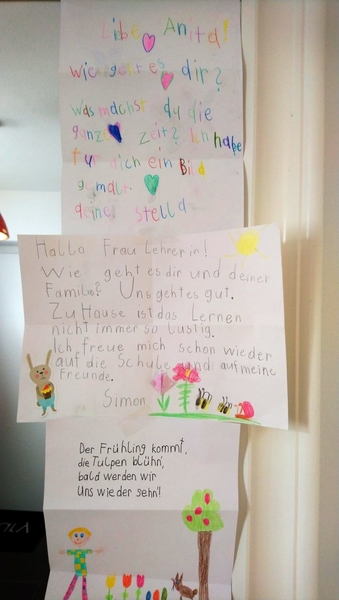 Liebe Anita!
wie geht es dir?
was machst du die
ganze zeit? Ich habe
für dich ein Bild
gemalt.
deine Stella
Hallo Frau Lehrerin!
Wie geht es dir und deiner
Familie? Uns geht es gut.
Zu Hause ist das Lernen
nicht immer so lustig.
Ich freue mich schon wieder
auf die Schule und auf meine
Freunde.
Simon
Der Frühling kommt,
die Tulpen blühn,
bald werden wir
Uns wieder sehn!